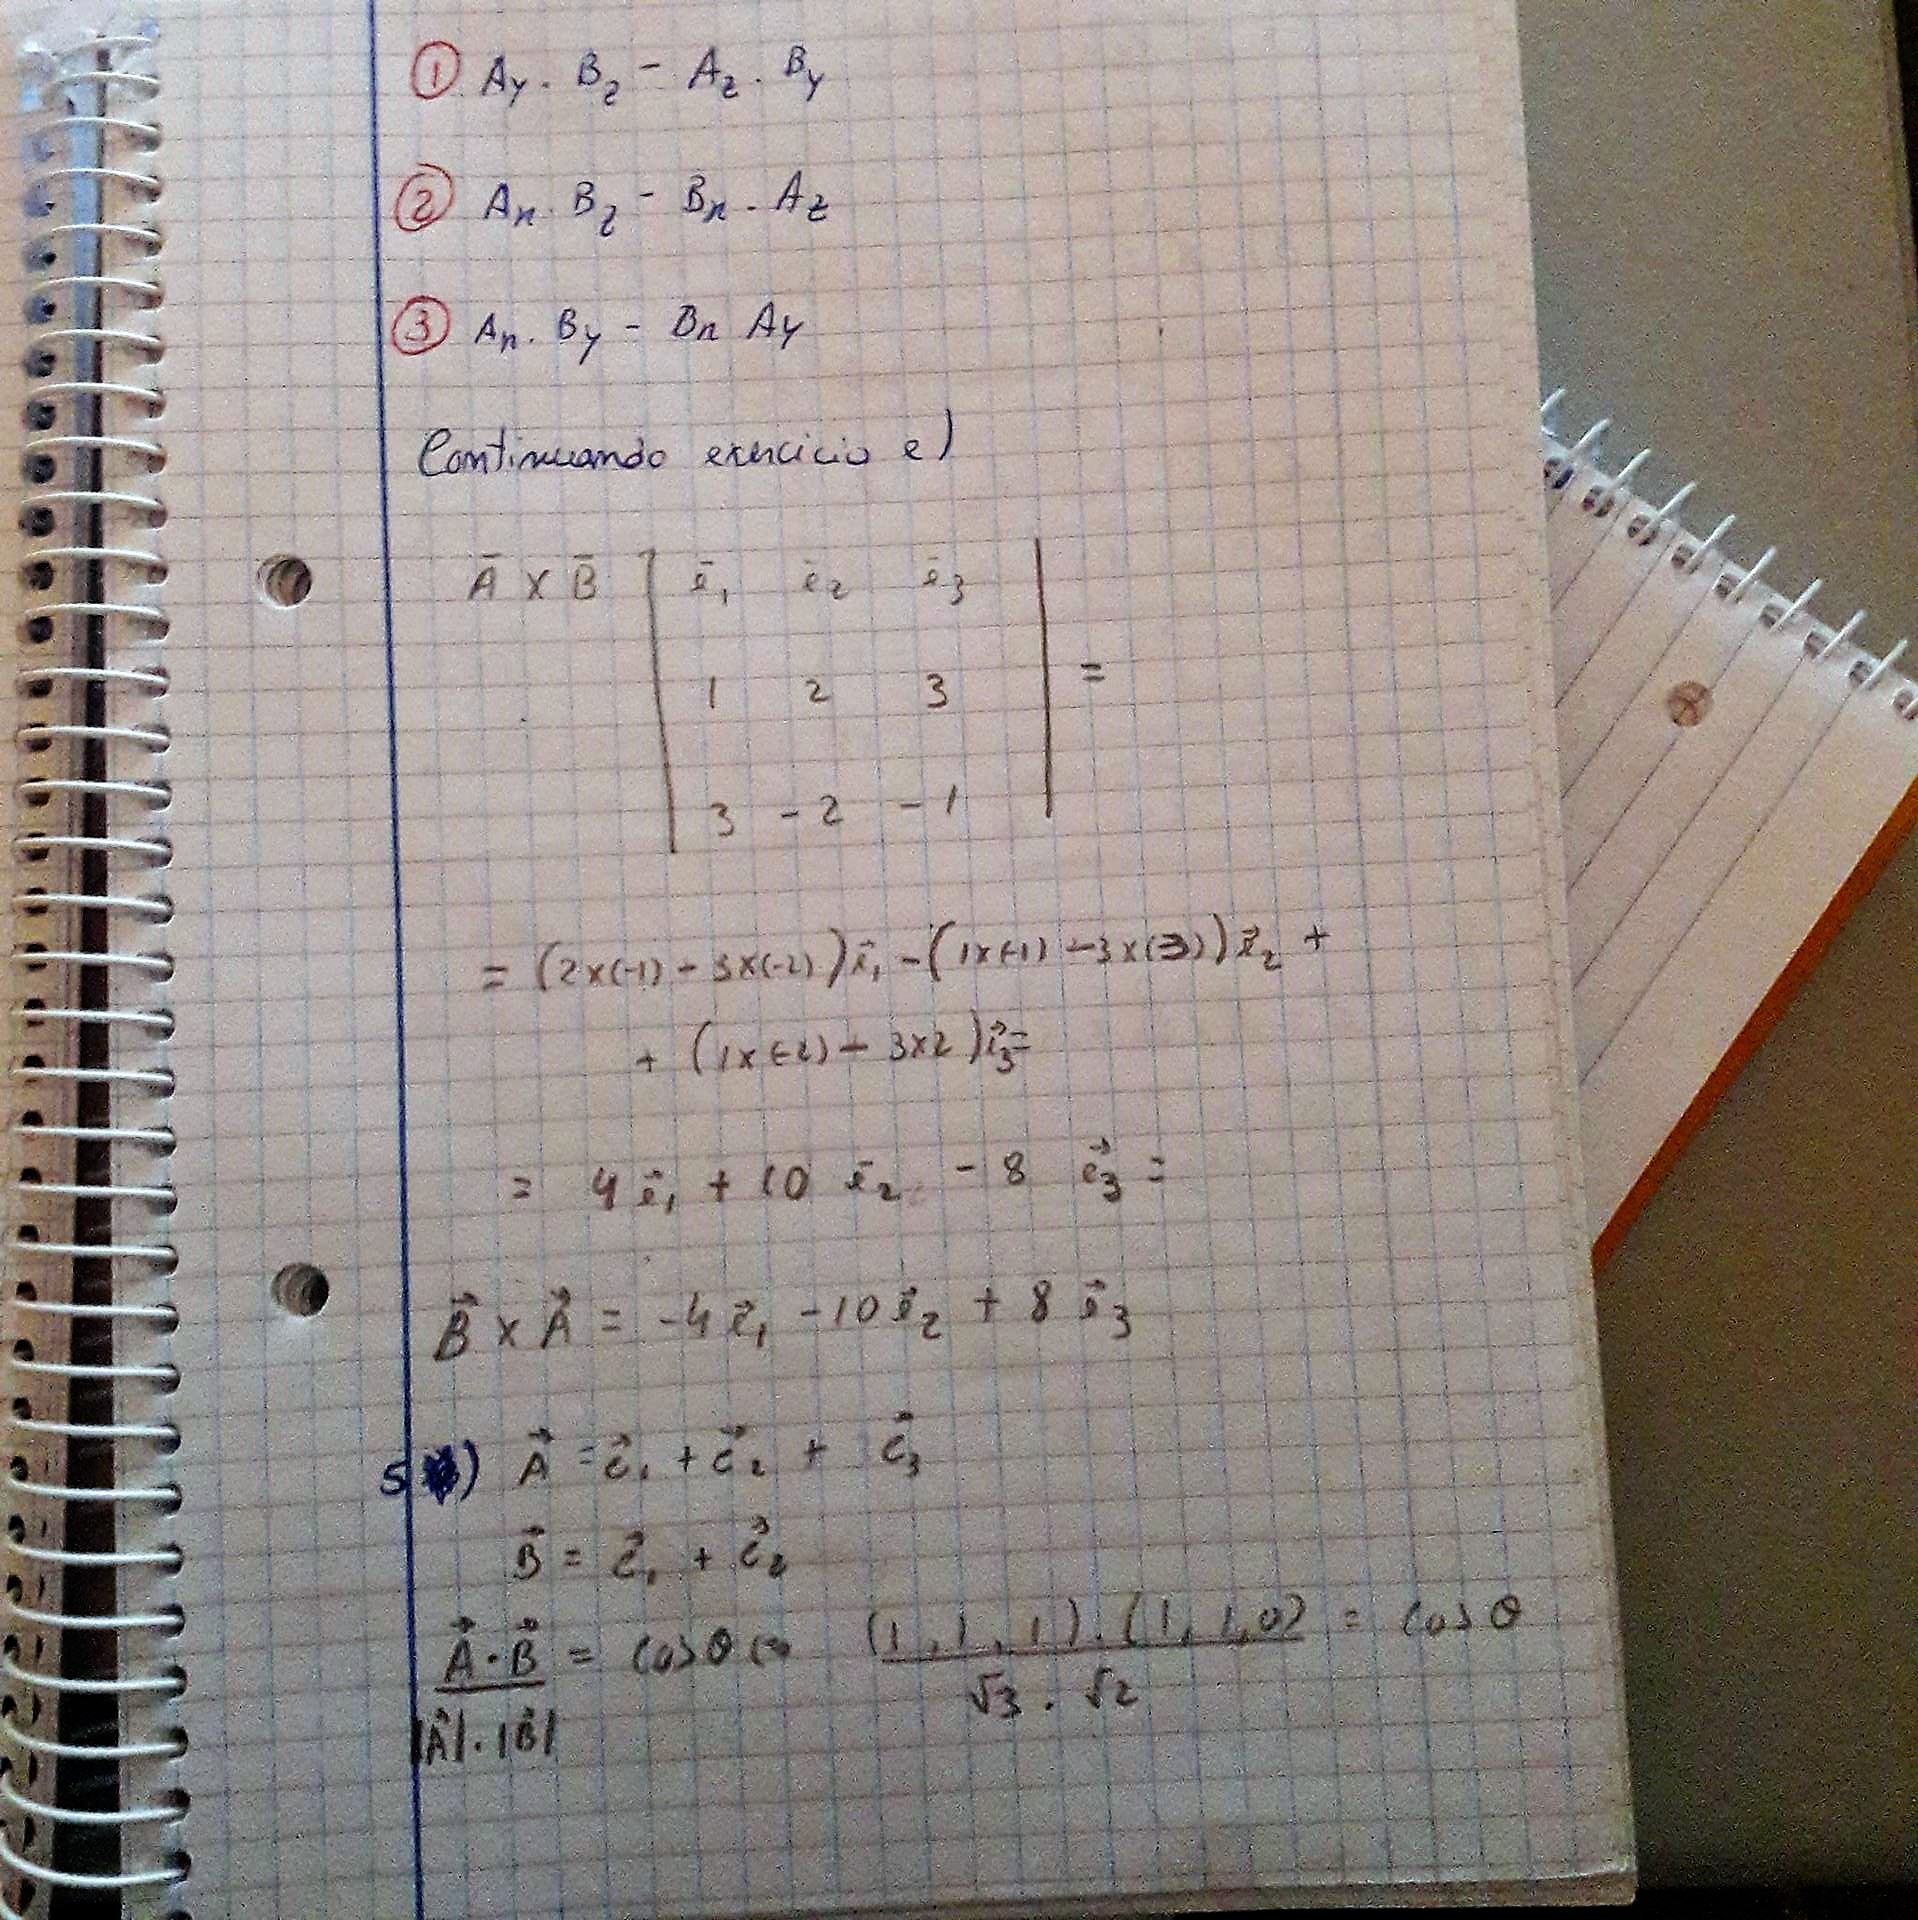 ① Ay . Bz - Az . By
② Ax . Bz - Bx . Az
③ Ax . By - Bx Ay
Continuando exercício e)
A̅ x B̅ | e̅₁ e̅₂ e̅₃ |
| 1 2 3 | =
| 3 -2 -1 |
= (2x(-1) - 3x(-2)) e⃗₁ - (1x(-1) - 3x(3)) e⃗₂ +
+ (1x(-2) - 3x2) e⃗₃ =
= 4 e⃗₁ + 10 e⃗₂ - 8 e⃗₃ =
B⃗ x A⃗ = -4 e⃗₁ - 10 e⃗₂ + 8 e⃗₃
5 ) A⃗ = e⃗₁ + e⃗₂ + e⃗₃
B⃗ = e⃗₁ + e⃗₂
A⃗ . B⃗ / |A⃗| . |B⃗| = cos θ (=> (1, 1, 1) . (1, 1, 0) / √3 . √2 = cos θ